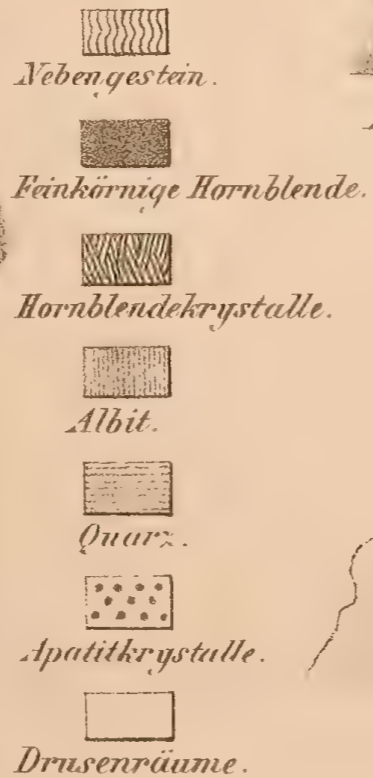 Nebengestein.
Feinkörnige Hornblende.
Hornblendekrystalle.
Albit.
Quarz.
Apatitkrystalle.
Drusenräume.